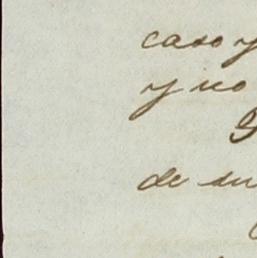 caso y
y no
de su